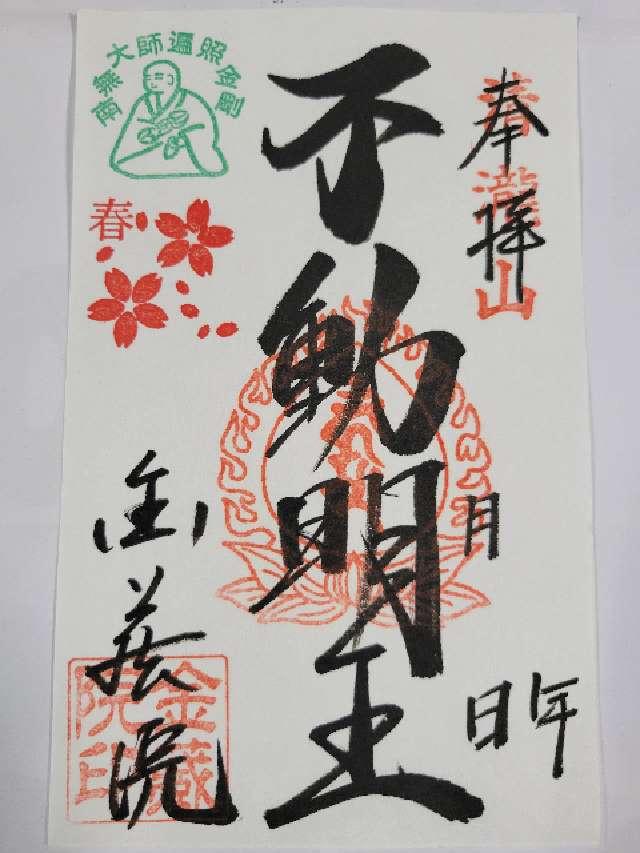 奉拝
春瀧山
年
月
日
不動明王
南無大師遍照金剛
春
金蔵院
金蔵院印